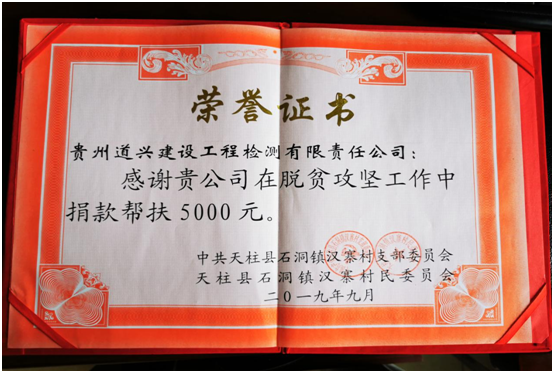 荣誉证书
贵州道兴建设工程检测有限责任公司：
感谢贵公司在脱贫攻坚工作中
捐款帮扶 5000 元。
中共天柱县石洞镇汉寨村支部委员会
天柱县石洞镇汉寨村民委员会
二〇一九年九月